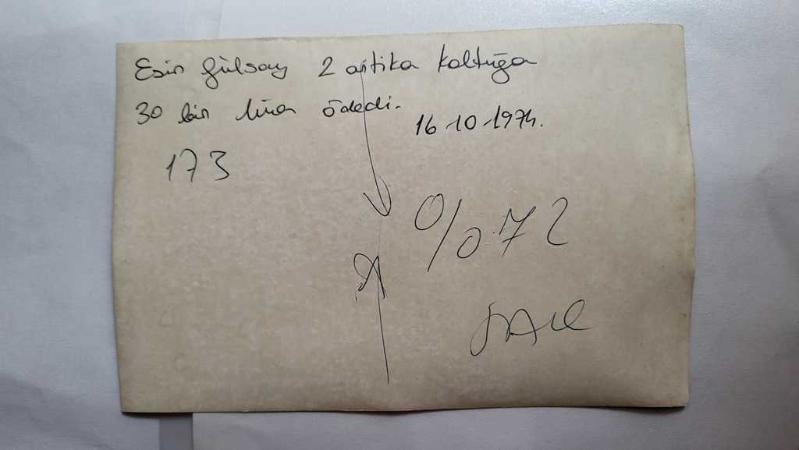 Esin Gülsoy 2 antika koltuğa
30 bin lira ödedi.
16-10-1974.
173
%072